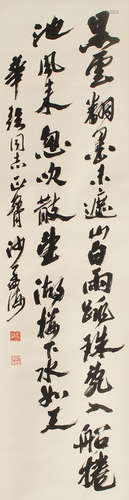 黑雲翻墨未遮山白雨跳珠亂入船捲
地風來忽吹散望湖樓下水如天
華強同志正腕 沙孟海